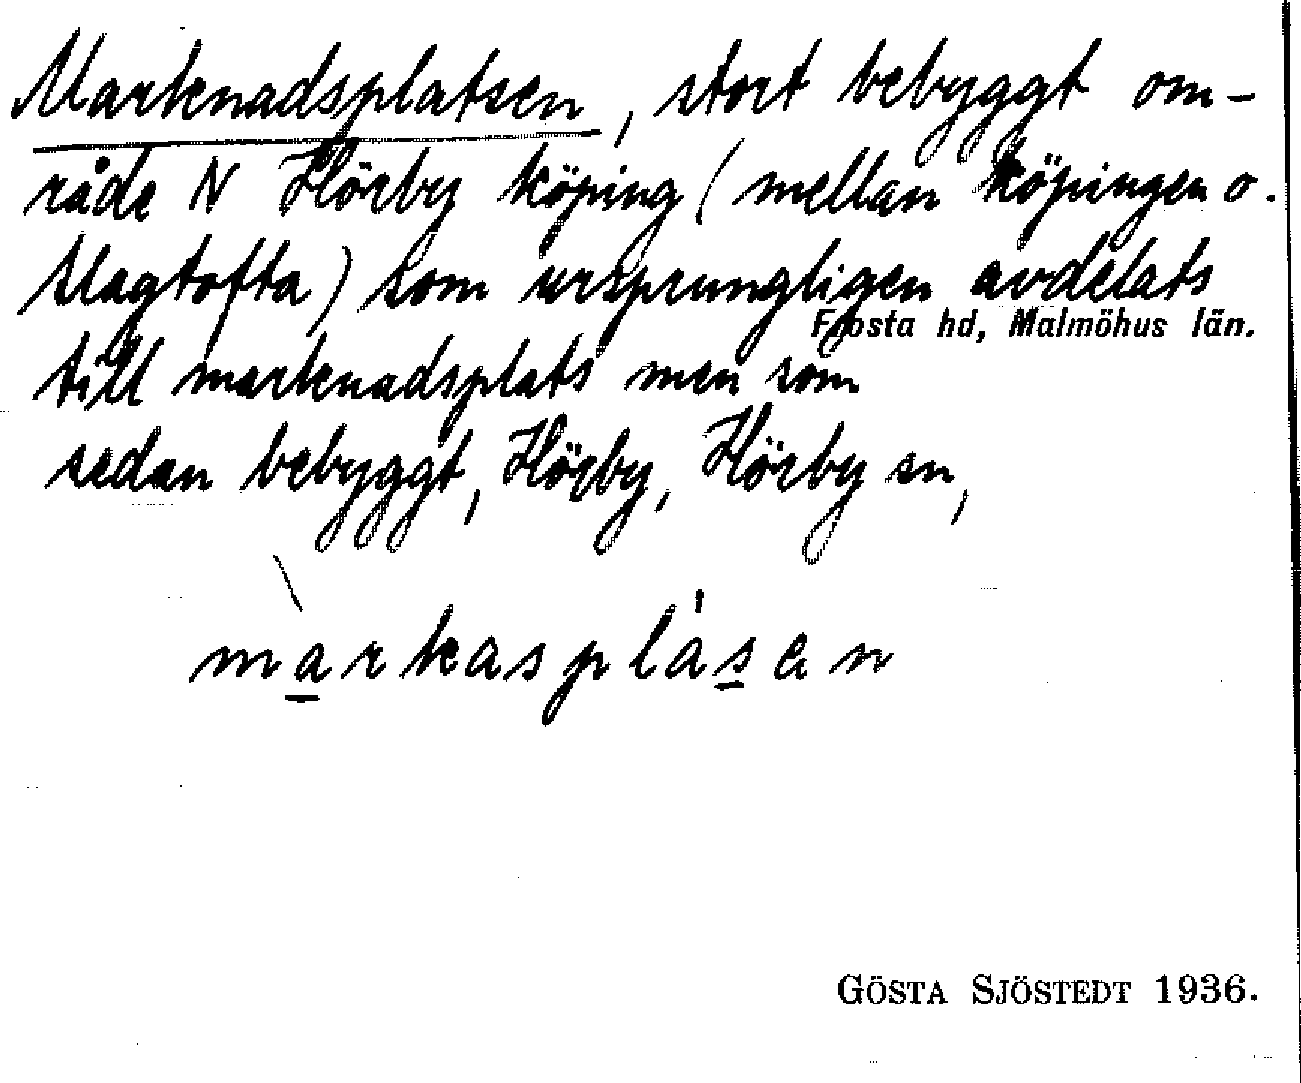 Marknadsplatsen, stort bebyggt om-
råde N Hörby köping (mellan köpingen o.
Slagtofta) som ursprungligen avdelats
Frosta hd, Malmöhus län.
till marknadsplats men som
sedan bebyggt, Hörby, Hörby sn,
màrkasplásen
GÖSTA SJÖSTEDT 1936.